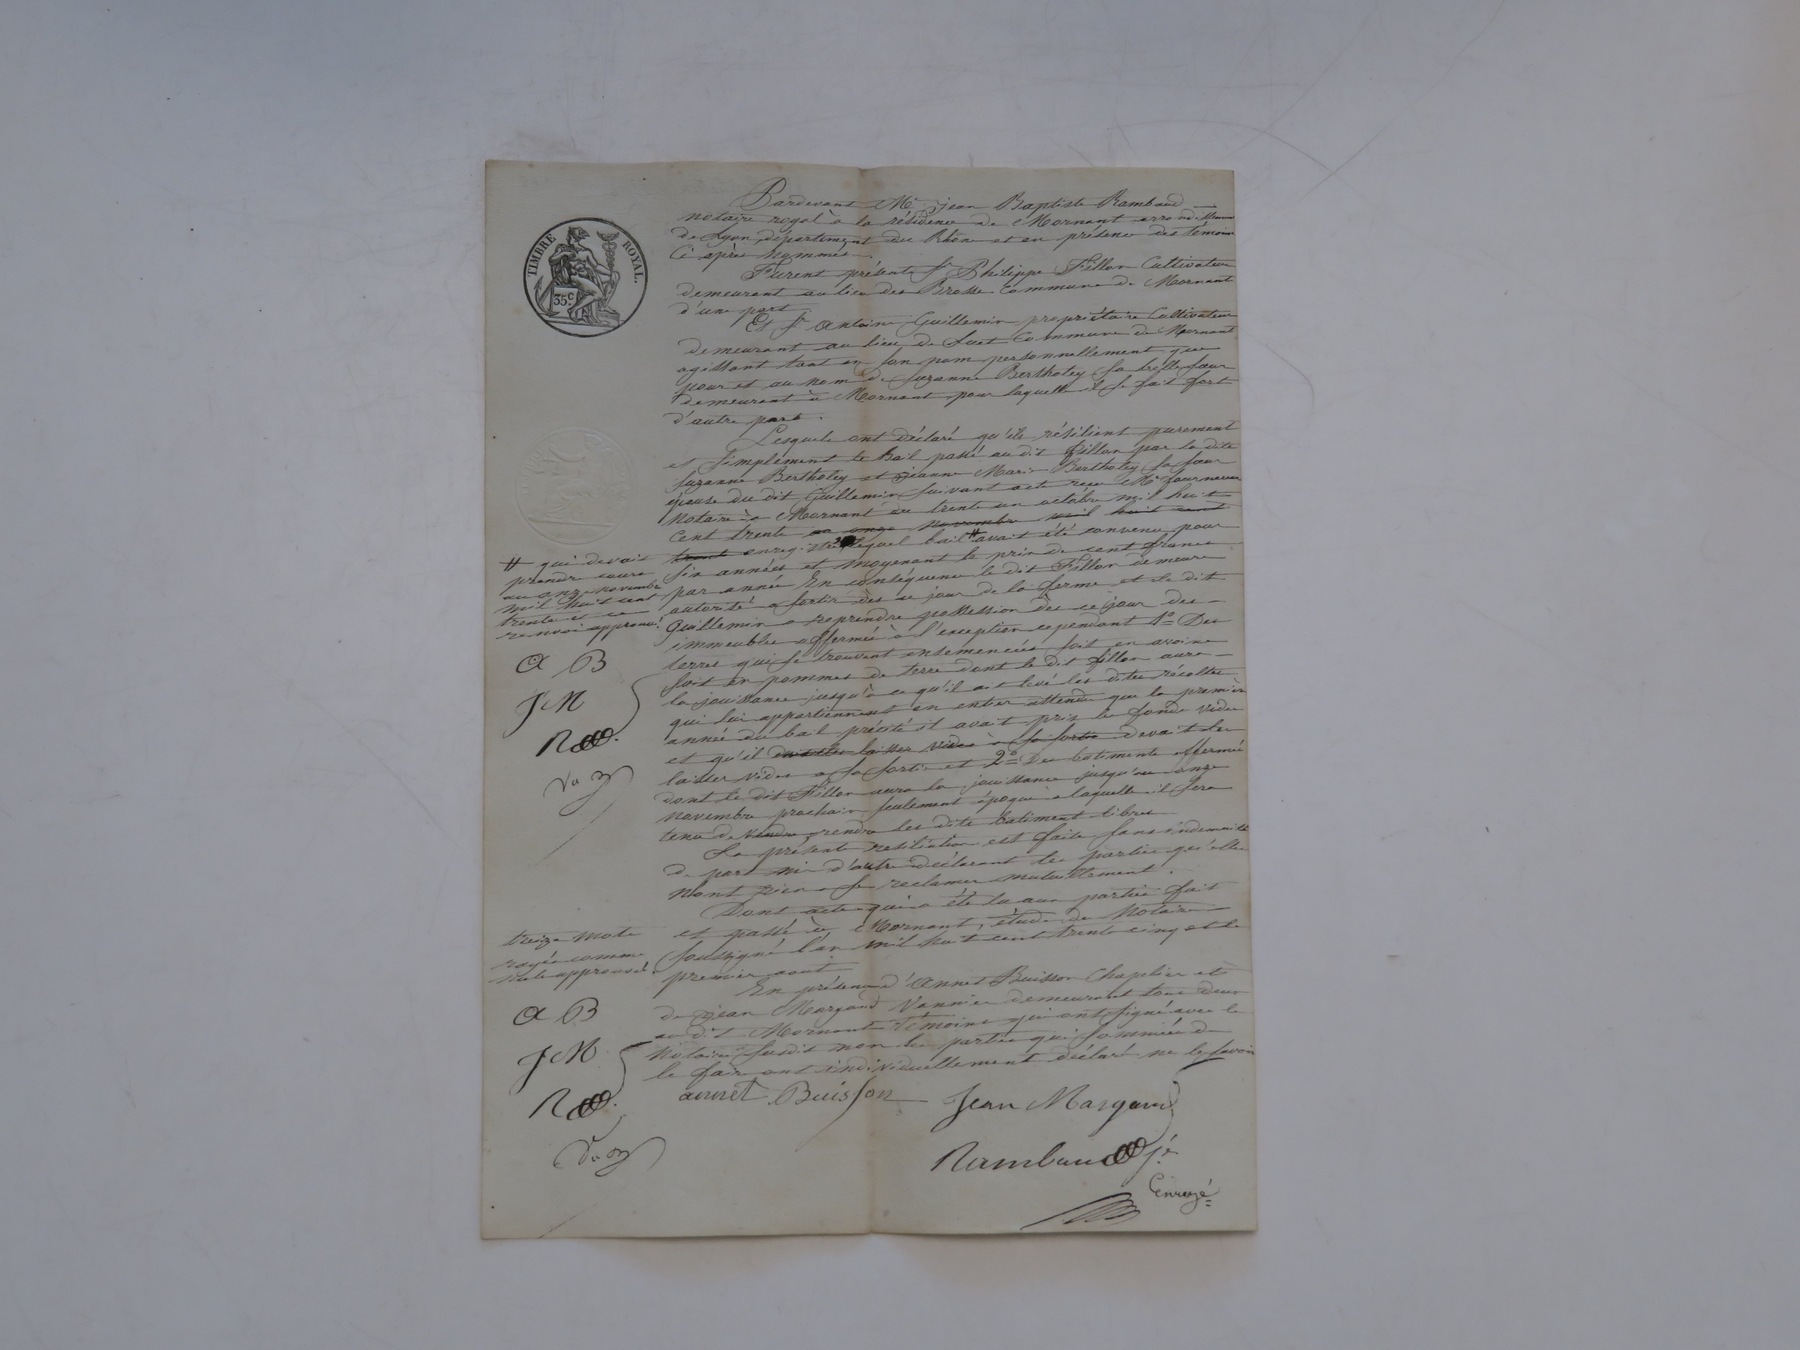 TIMBRE ROYAL.
35c.
Pardevant Me Jean Baptiste Rambaud
notaire royal à la résidence de Mornant arrondissement
de Lyon département du Rhône et en présence des témoins
Ci après nommés
Furent présents Sr Philippe Fillon Cultivateur
demeurant au lieu des Brosse Commune de Mornant
d'une part
Et Sr Antoine Guillemin propriétaire Cultivateur
demeurant au lieu de Commune de Mornant
agissant tant en son nom personnellement que
pour et au nom de Suzanne Bertholey sa belle soeur
demeurant à Mornant pour laquelle il se fait fort
d'autre part.
Lesquels ont déclaré qu'ils résilient purement
et simplement le bail passé au dit Fillon par la dite
Suzanne Bertholey et Jeanne Marie Bertholey sa soeur
épouse du dit Guillemin suivant acte reçu Me
Notaire à Mornant du trente un octobre mil huit
cent trente ou onze novembre mil huit cent
trente enregistré lequel bail # avait été convenu pour
six années et moyenant le prix de cent francs
par année En conséquence le dit Fillon demeure
autorisé a sortir dès ce jour de la ferme et le dit
Guillemin a reprendre possession dès ce jour des
immeubles affermés à l'exception cependant 1o Des
terres qui se trouvent ensemencées soit en avoine
soit en pommes de terre dont le dit fillon aura
la jouissance jusqu'à ce qu'il ait levé les dites récoltes
qui lui appartiennent en entier attendu que la première
année du bail précité il avait pris les fonds vides
et qu'il laisser vides à sa sortie devait les
laisser vides a sa sortie et 2o Des batiments affermés
dont le dit Fillon aura la jouissance jusqu'au onze
novembre prochain seulement époque a laquelle il sera
tenu de rendre les dits batiment libres
La présente résiliation est faite sans indemnité
de part ni d'autre déclarant les parties qu'elles
n'ont rien a se reclamer mutuellement.
Dont acte qui a été lu aux parties fait
et passé à Mornant, étude du Notaire
soussigné l'an mil huit cent trente cinq et le
premier aout
En présence d'Annet Buisson Chapelier et
de Jean Margand Vannier demeurant tous deux
au dit Mornant témoins qui ont signé avec le
Notaire susdit non les parties qui sommées de
le faire ont individuellement déclaré ne le savoir
# qui devait
prendre cours
au onze novembre
mil huit cent
trente et ce
renvoi approuvé
A B
J M
R
treize mots
rayés comme
nuls approuvé
A B
J M
R
annet Buisson
Jean Margand
Rambaud
Enregé